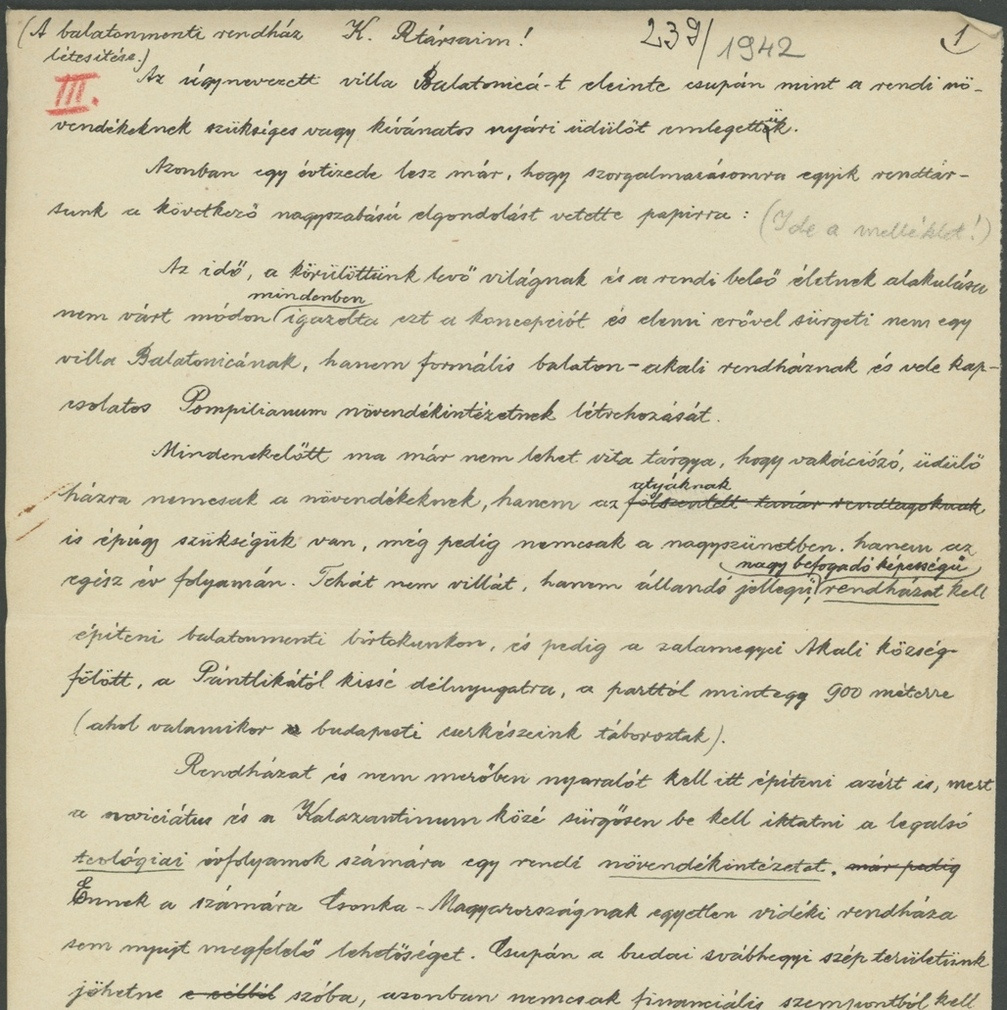 (A balatonmenti rendház K. Rtársaim! 239/1942 1
létesítése.)
III. Az úgynevezett villa Balatonicá-t eleinte csupán mint a rendi nö-
vendékeknek szükséges vagy kívánatos nyári üdülőt emlegettük.
Azonban egy évtizede lesz már, hogy szorgalmazásomra egyik rendtár-
sunk a következő nagyszabású elgondolást vetette papirra: (Ide a melléklet!)
Az idő, a körülöttünk levő világnak és a rendi belső életnek alakulása
mindenben
nem várt módon igazolta ezt a koncepciót és elemi erővel sürgeti nem egy
villa Balatonicának, hanem formális balaton-akali rendháznak és vele kap-
csolatos Pompilianum növendékintézetnek létrehozását.
Mindenekelőtt ma már nem lehet vita tárgya, hogy vakációzó, üdülő
atyáknak
házra nemcsak a növendékeknek, hanem az fölszentelt tanár rendtagoknak
is épúgy szükségük van, még pedig nemcsak a nagyszünetben, hanem az
nagy befogadó képességű
egész év folyamán. Tehát nem villát, hanem állandó jellegű, rendházat kell
építeni balatonmenti birtokunkon, és pedig a zalamegyei Akali község
fölött, a Pántlikától kissé délnyugatra, a parttól mintegy 900 méterre
(ahol valamikor a budapesti cserkészeink táboroztak).
Rendházat és nem merőben nyaralót kell itt építeni azért is, mert
a noviciátus és a Kalazantinum közé sürgősen be kell iktatni a legalsó
teológiai évfolyamok számára egy rendi növendékintézetet. már pedig
Ennek a számára Csonka-Magyarországnak egyetlen vidéki rendháza
sem nyujt megfelelő lehetőséget. Csupán a budai svábhegyi szép területünk
jöhetne e célból szóba, azonban nemcsak financiális szempontból kell